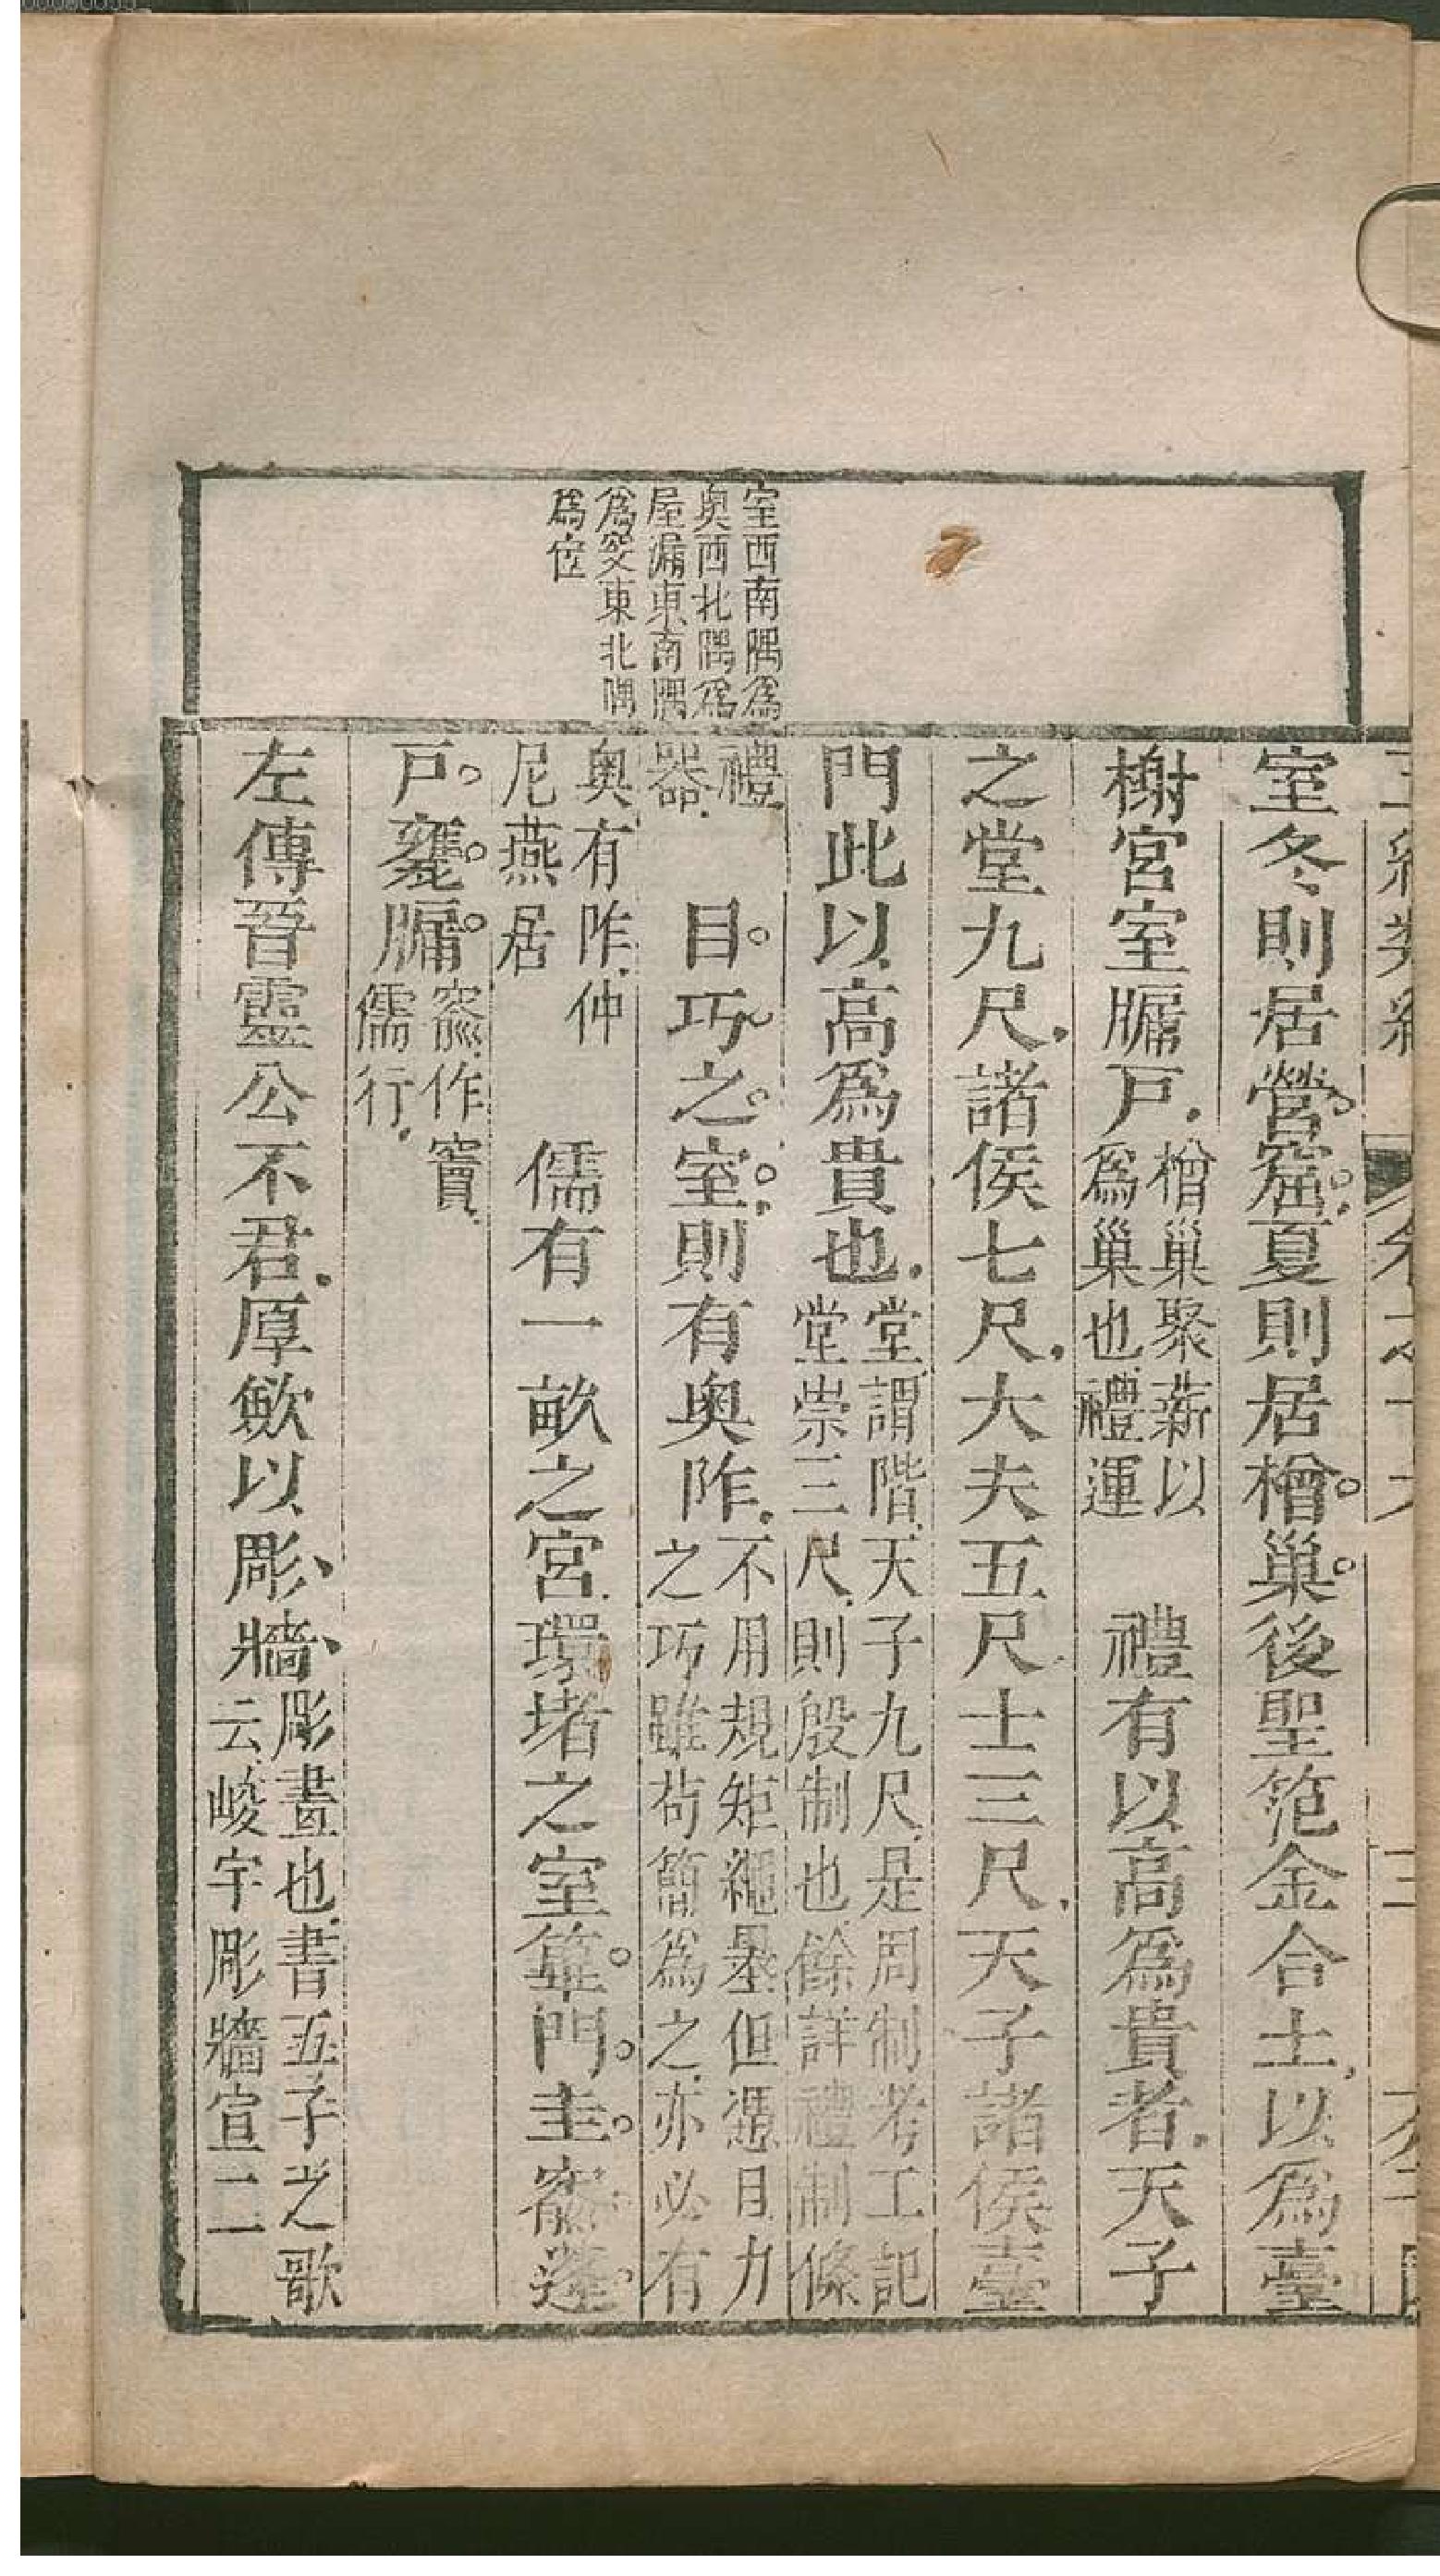 室西南隅為
奥西北隅為
屋漏東南隅
為窔東北隅
為宧
室冬則居營窟夏則居橧巢後聖范金合土以為臺
榭宮室牖戸橧巢聚薪以
為巢也禮運
禮有以高為貴者天子
之堂九尺諸侯七尺大夫五尺士三尺天子諸侯臺
門此以高為貴也堂謂階天子九尺是周制考工記
堂崇三尺則殷制也餘詳禮制條
禮
器
目巧之室則有奥阼不用規矩繩墨但憑目力
之巧雖苟簡為之亦必有
奥有阼仲
尼燕居
儒有一畝之宮環堵之室篳門圭窬蓬
戸甕牖窬作竇
儒行
左傳晉靈公不君厚斂以彫牆彫畫也書五子之歌
云峻宇彫牆宣二